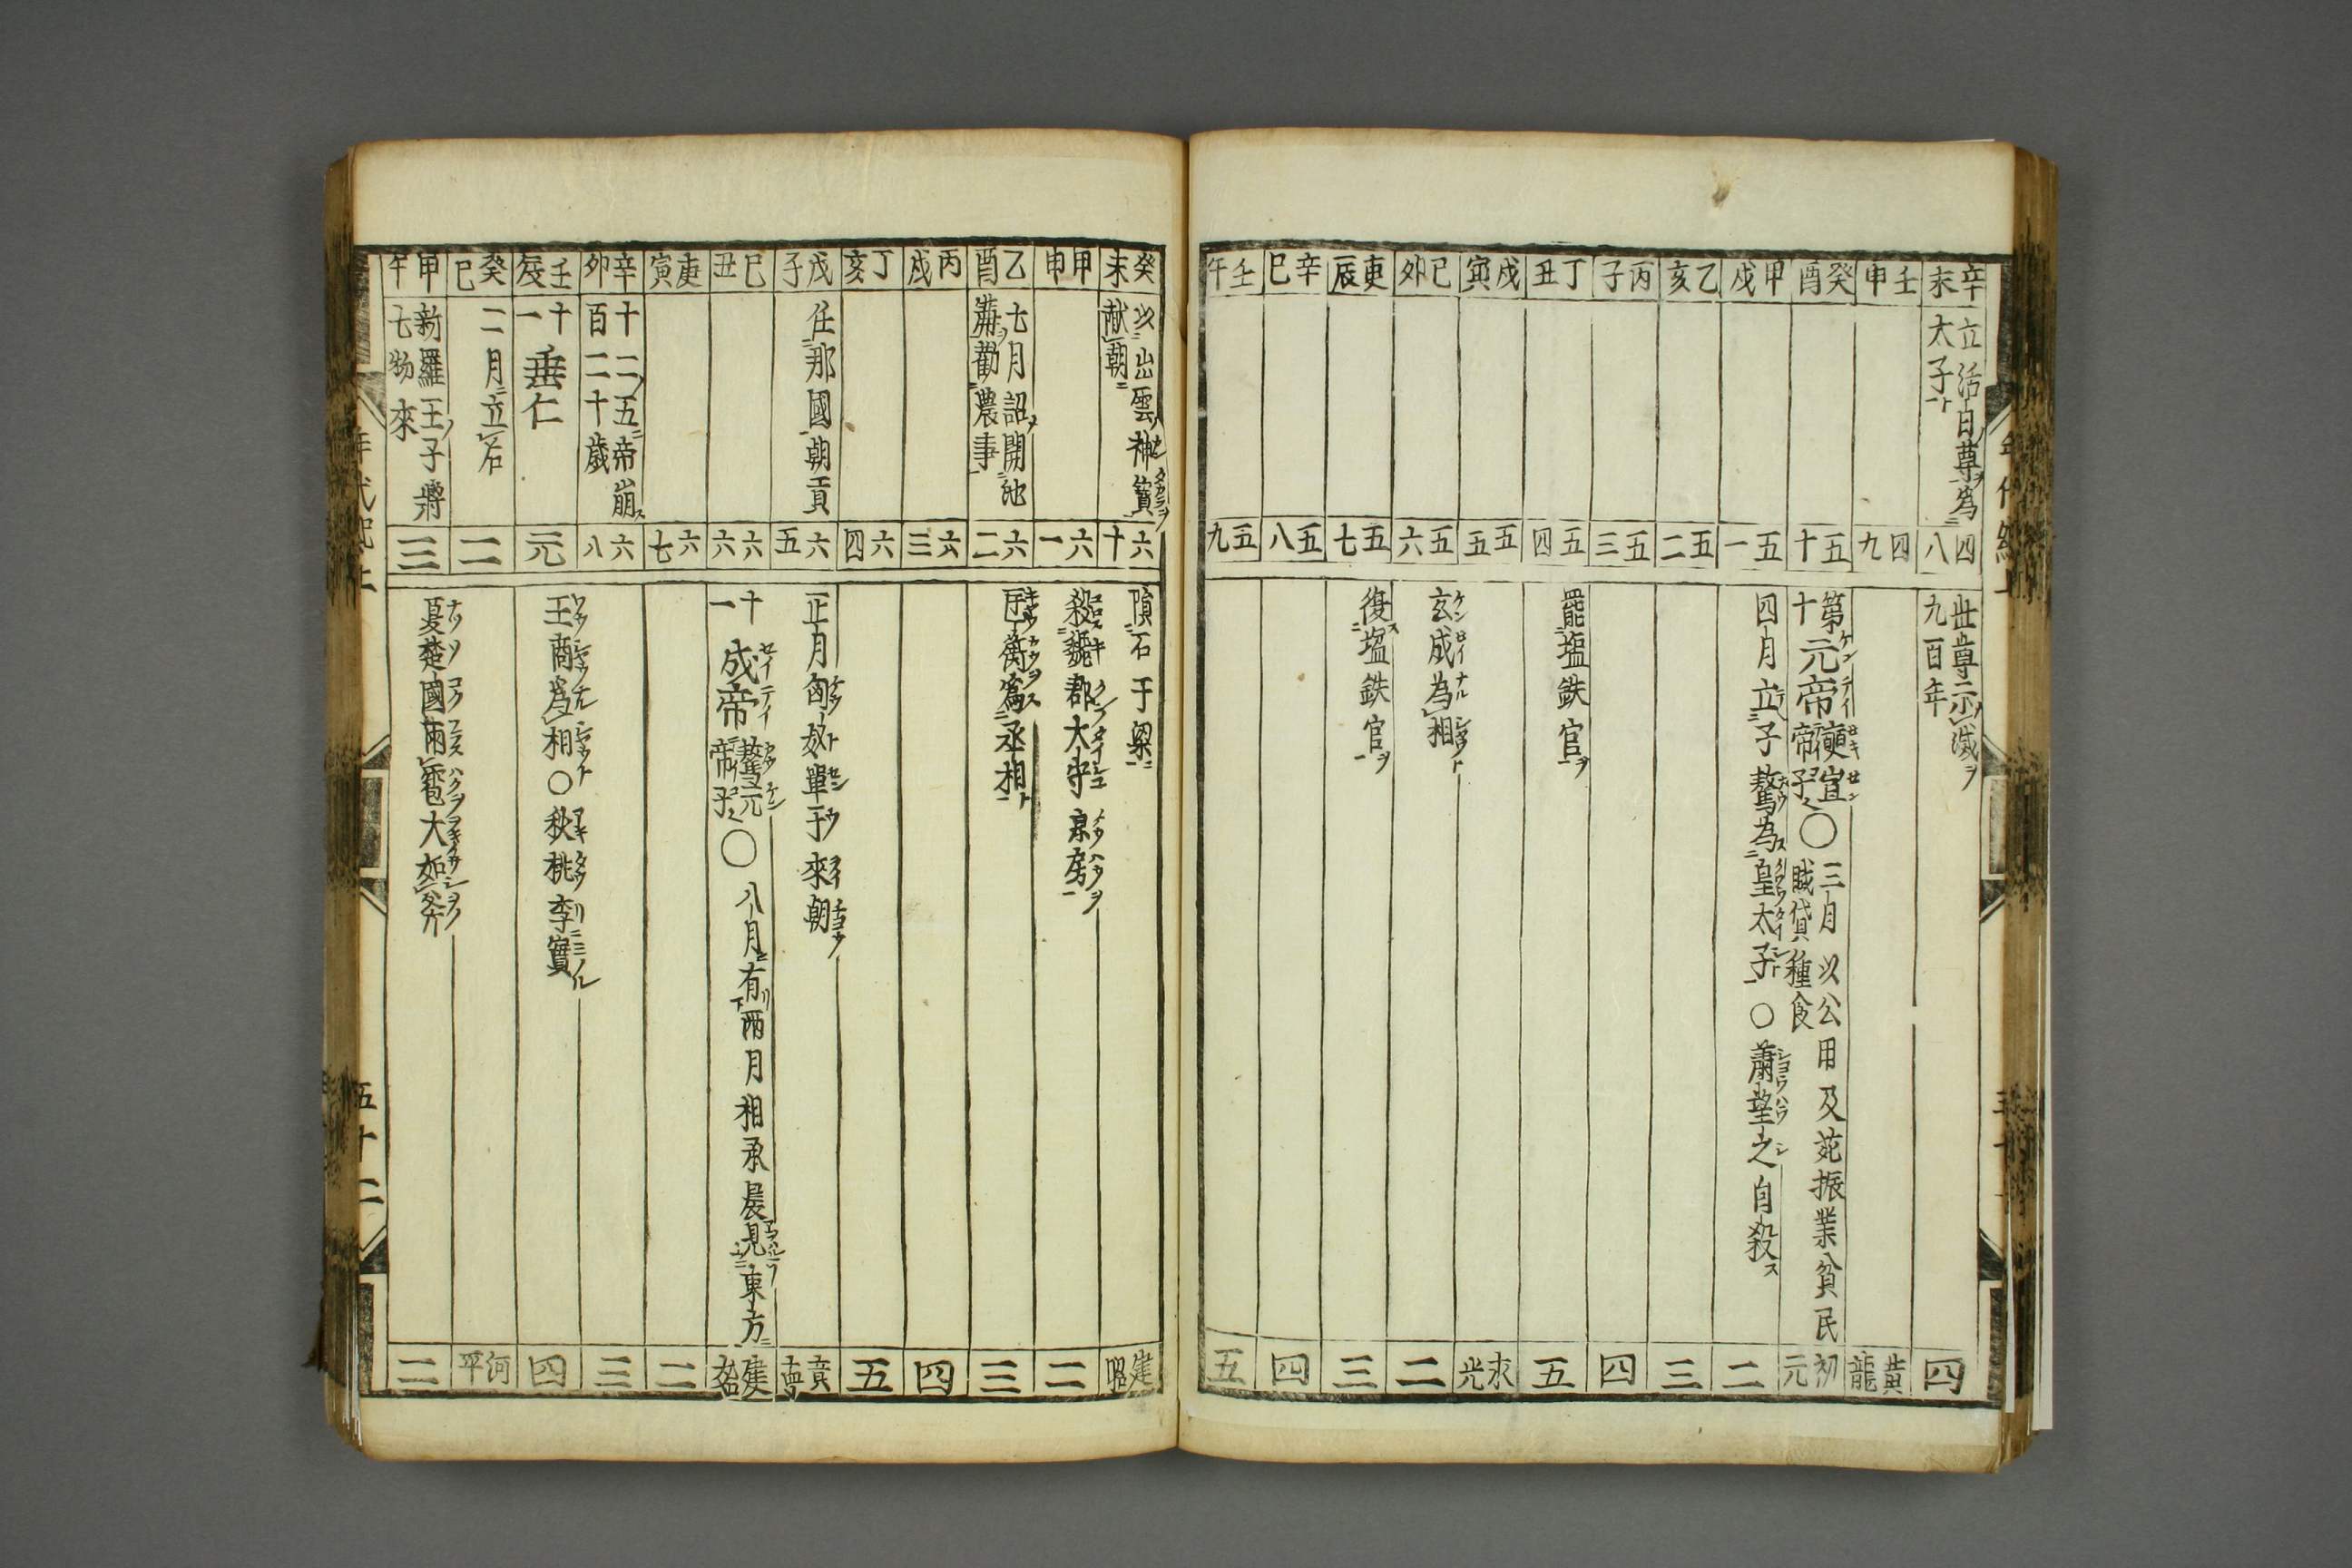 辛未
立活目尊為
大子
四八
世尊示滅
九百年
四
壬申
四九
黄龍
癸酉
五十
第十
元帝
奭宣
帝子
〇
三月以公田及苑振業貧民
賊貸種食
初元
甲戌
五一
四月立子驁為皇太子〇蕭望之自殺
二
乙亥
五二
三
丙子
五三
四
丁丑
五四
罷塩鉄官
五
戊寅
五五
永光
己卯
五六
玄成為相
二
庚辰
五七
復塩鉄官
三
辛巳
五八
四
壬午
五九
五
癸未
以出雲神寳
献朝
六十
隕石于梁
建昭
甲申
六一
殺魏郡大守京房
二
乙酉
七月詔開池
溝勸農事
六二
匡衡為丞相
三
丙戌
六三
四
丁亥
六四
五
戊子
任那國朝貢
六五
正月匈奴單于來朝
竟寧
己丑
六六
十一
成帝
驁元
帝子
〇
八月有兩月相承晨見東方
建始
庚寅
六七
二
辛卯
十二五帝崩
百二十歳
六八
三
壬辰
十一
垂仁
元
王商為相〇秋桃李實
四
癸巳
二月立后
二
河平
甲午
新羅王子將
七物來
三
夏楚國雨雹大如斧
二
年代紀上
五十二